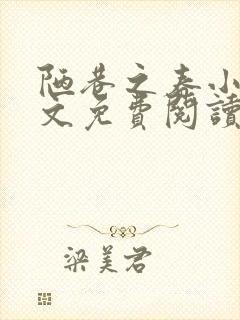 陋巷之春小
文免費閱讀
梁美君